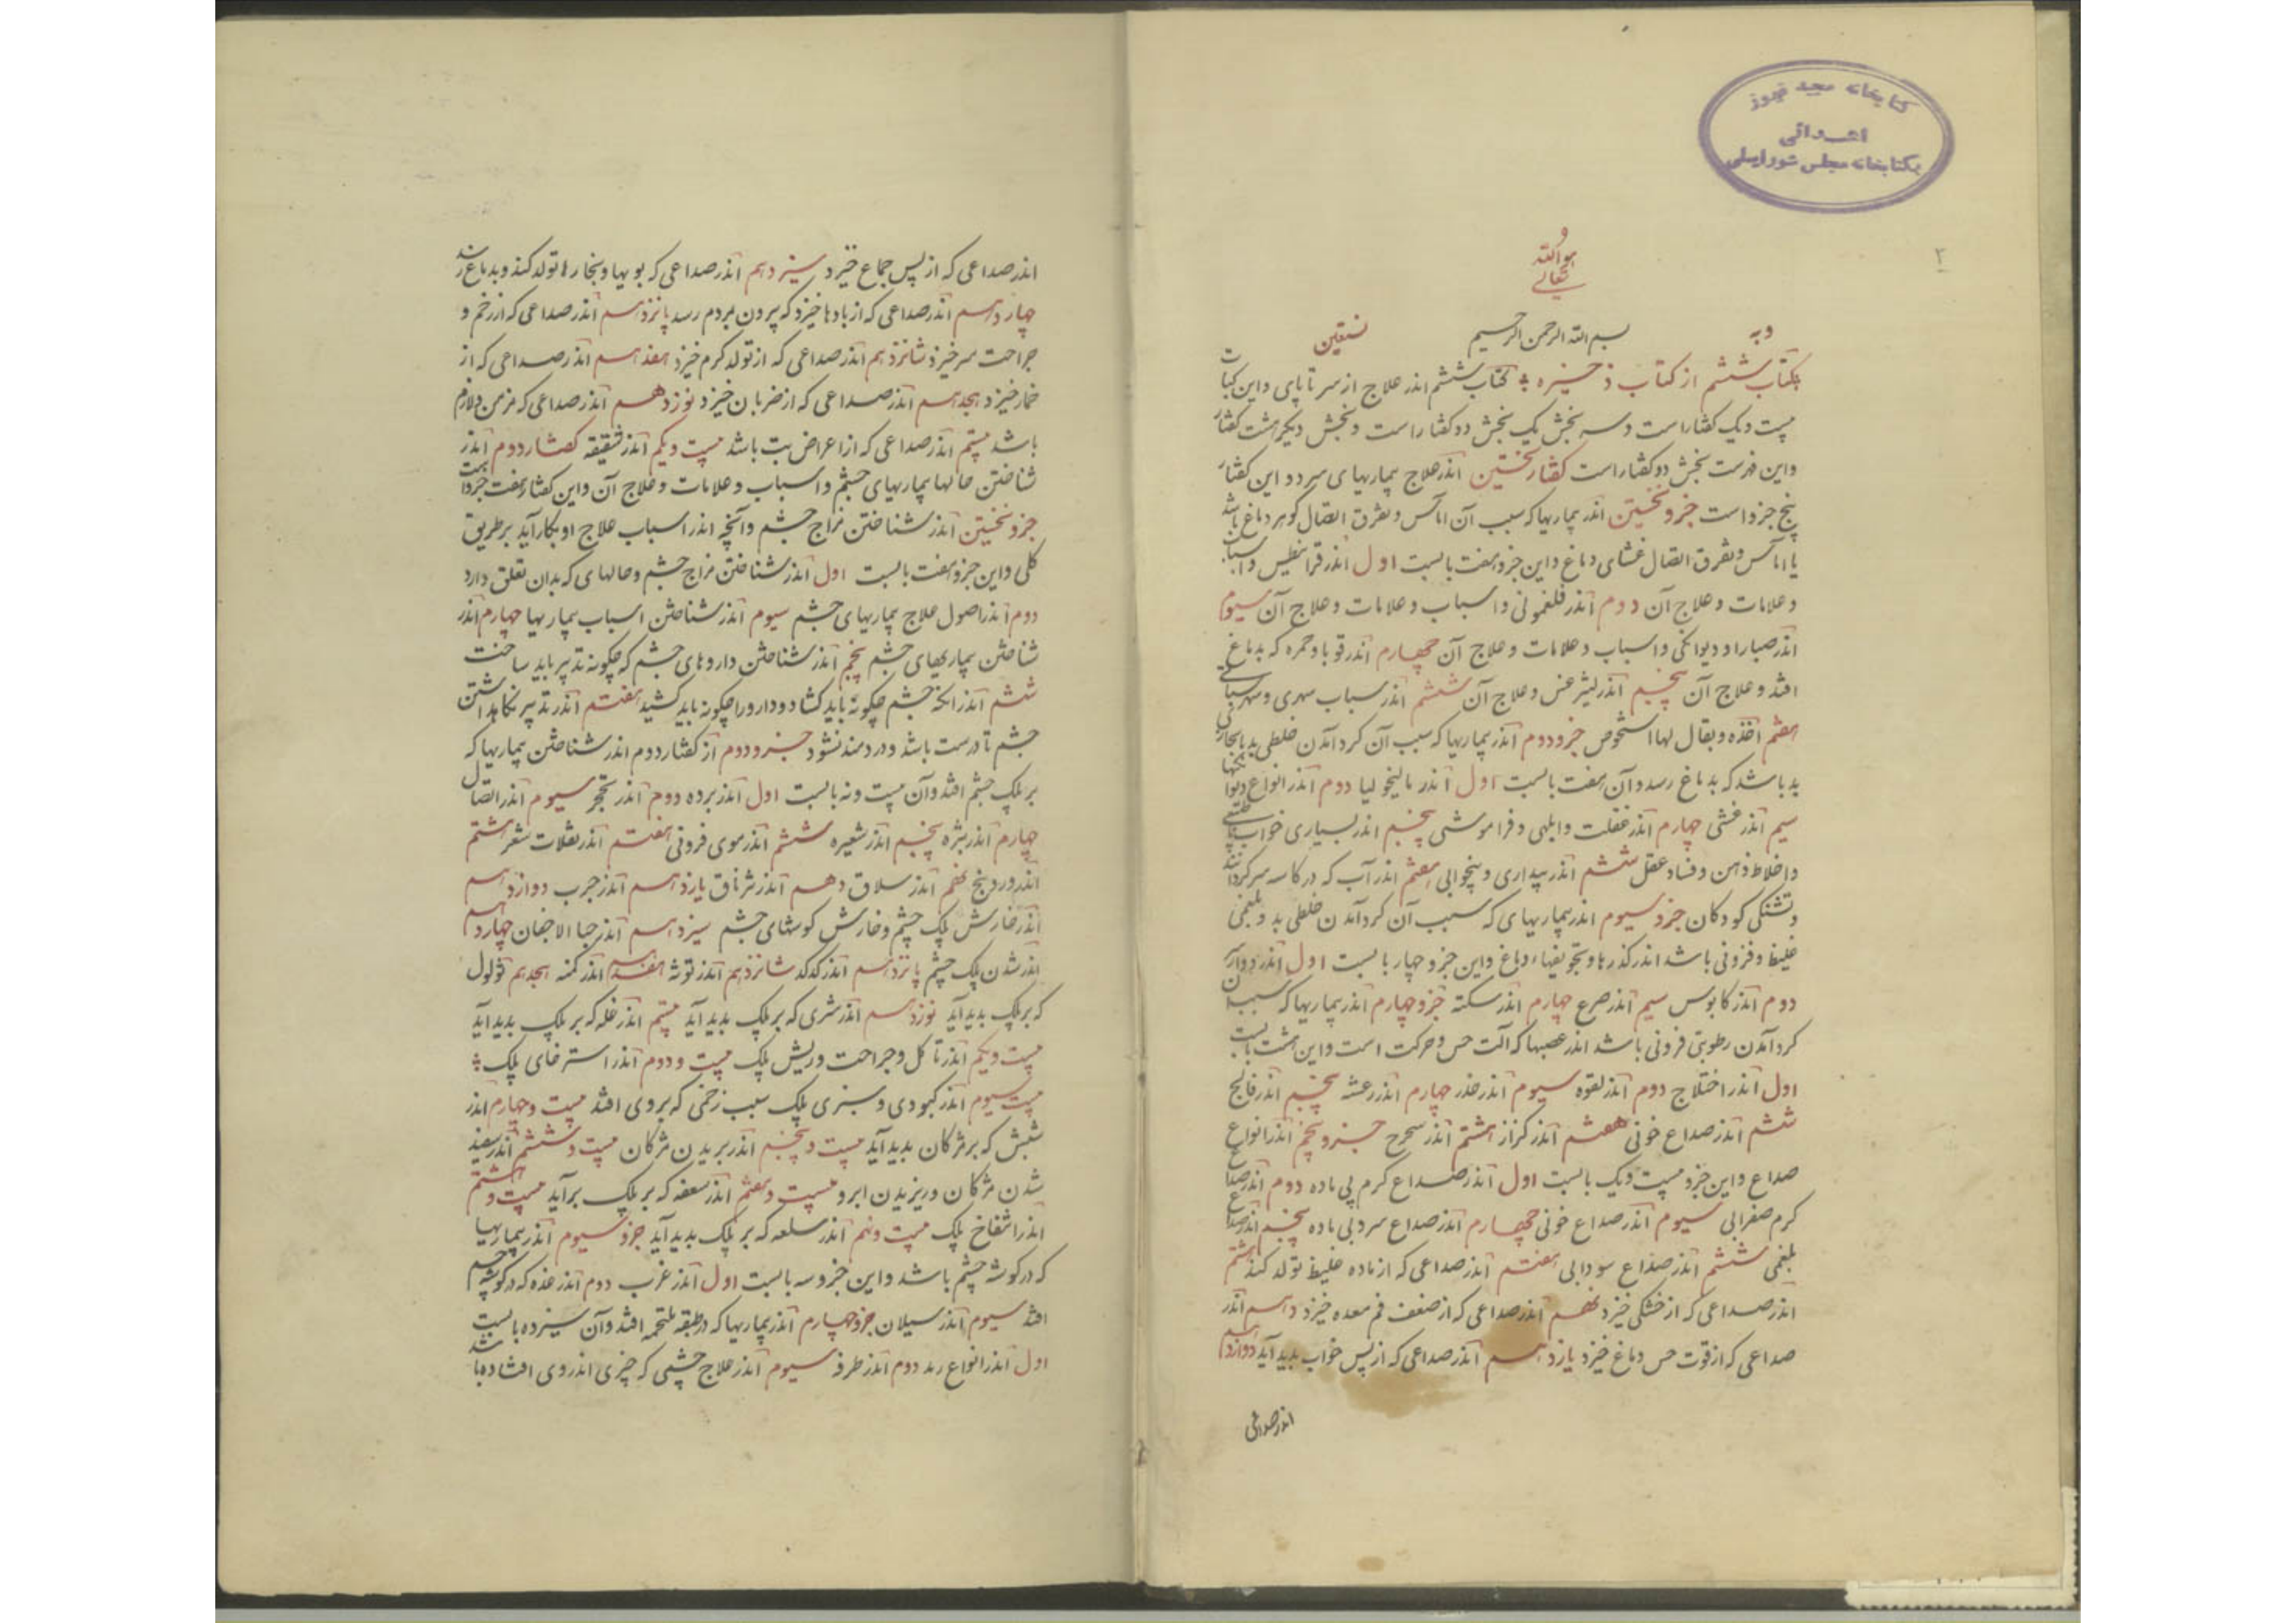 کتابخانه مجید فیروز
اهدائی
بکتابخانه مجلس شورایملی
۲
هو الله
تعالی
وبه
بسم الله الرحمن الرحیم
نستعین
کتاب ششم از کتاب ذخیره کتاب ششم اندر علاج از سر تا پای و این کتاب
بیست و یک کفتار است و سه بخش یک بخش دو کفتار است و بخش دیکر هشت کفتار
و این فهرست بخش دو کفتار است کفتار نخستین اندر علاج بیماریهای سر و این کفتار
پنج جزو است جزو نخستین اندر بیماریها که سبب آن آماس و تفرق اتصال کوهر دماغ باشد
یا آماس و تفرق اتصال غشای دماغ و این جزو هفت بابست اول اندر قرانیطس و اسباب
و علامات و علاج آن دوم اندر فلغمونی و اسباب و علامات و علاج آن سیوم
اندر صبارا و دیوانکی و اسباب و علامات و علاج آن چهارم اندر قوبا و حمره که بدماغ
افتد و علاج آن پنجم اندر لیثرغس و علاج آن ششم اندر سبات سهری و سهر سباتی
هفتم آخذه و یقال لها الشخوص جزو دوم اندر بیماریها که سبب آن کرد آمدن خلطی بد یا بخاری
بد باشد که بدماغ رسد و آن هفت بابست اول اندر مالیخولیا دوم اندر انواع دیوانکیها
سیم اندر عشق چهارم اندر غفلت و ابلهی و فراموشی پنجم اندر بسیاری خواب
و اخلاط ذهن و فساد عقل ششم اندر بیداری و بیخوابی هفتم اندر آب که در کاسه سر کرد آید
و تشنکی کودکان جزو سیوم اندر بیماریهای که سبب آن کرد آمدن خلطی بد و بلغمی
غلیظ و فزونی باشد اندر کذرها و تجویفهاء دماغ و این جزو چهار بابست اول اندر دوار
دوم اندر کابوس سیم اندر صرع چهارم اندر سکته جزو چهارم اندر بیماریها که سبب آن
کرد آمدن رطوبتی فزونی باشد اندر عصبها که آلت حس و حرکت است و این هشت بابست
اول اندر اختلاج دوم اندر لقوه سیوم اندر خدر چهارم اندر رعشه پنجم اندر فالج
ششم اندر صداع خونی هفتم اندر کزاز هشتم اندر جزو پنجم اندر انواع
صداع و این جزو بیست و یک بابست اول اندر صداع کرم بی ماده دوم اندر صداع
کرم صفرایی سیوم اندر صداع خونی چهارم اندر صداع سرد بی ماده پنجم اندر صداع
بلغمی ششم اندر صداع سودایی هفتم اندر صداعی که از ماده غلیظ تولد کند هشتم
اندر صداعی که از خشکی خیزد نهم اندر صداعی که از ضعف فم معده خیزد دهم اندر
صداعی که از قوت حس دماغ خیزد یازدهم اندر صداعی که از پس خواب بدید آید دوازدهم
اندر صداعی
اندر صداعی که از پس جماع خیزد سیزدهم اندر صداعی که بویها و بخارها تولد کند و بدماغ رسد
چهاردهم اندر صداعی که از بادها خیزد که بیرون بمردم رسد پانزدهم اندر صداعی که از زخم و
جراحت سر خیزد شانزدهم اندر صداعی که از تولد کرم خیزد هفدهم اندر صداعی که از
خمار خیزد هجدهم اندر صداعی که از ضربان خیزد نوزدهم اندر صداعی که مزمن و لازم
باشد بیستم اندر صداعی که از اعراض تب باشد بیست و یکم اندر شقیقه کفتار دوم اندر
شناختن حالها بیماریهای چشم و اسباب و علامات و علاج آن و این کفتار هفت جزو است
جزو نخستین اندر شناختن مزاج چشم و آنچه اندر اسباب علاج او بکار آید بر طریق
کلی و این جزو هفت بابست اول اندر شناختن مزاج چشم و حالهای که بدان تعلق دارد
دوم اندر اصول علاج بیماریهای چشم سیوم اندر شناختن اسباب بیماریها چهارم اندر
شناختن بیماریهای چشم پنجم اندر شناختن داروهای چشم که چکونه تدبیر باید ساخت
ششم اندر آنکه چشم چکونه باید کشاد و دارو را چکونه باید کشید هفتم اندر تدبیر نکاهداشتن
چشم تا درست باشد و دردمند نشود جزو دوم از کفتار دوم اندر شناختن بیماریها که
بر پلک چشم افتد و آن بیست و نه بابست اول اندر برده دوم اندر تحجر سیوم اندر التصاق
چهارم اندر شتره پنجم اندر شعیره ششم اندر موی فزونی هفتم اندر تقلات شعر هشتم
اندر وردینج نهم اندر سلاق دهم اندر شرناق یازدهم اندر جرب دوازدهم
اندر خارش پلک چشم و خارش کوشهای چشم سیزدهم اندر جسا الاجفان چهاردهم
اندر شدن پلک چشم پانزدهم اندر کدکد شانزدهم اندر توثه هفدهم اندر کمنه هجدهم ثولول
که بر پلک بدید آید نوزدهم اندر شری که بر پلک بدید آید بیستم اندر نمله که بر پلک بدید آید
بیست و یکم اندر تاکل و جراحت و ریش پلک بیست و دوم اندر استرخای پلک
بیست سیوم اندر کبودی و سبزی پلک سبب زخمی که بر وی افتد بیست و چهارم اندر
شپش که بر مژکان بدید آید بیست و پنجم اندر بریدن مژکان بیست و ششم اندر سفید
شدن مژکان و ریزیدن ابرو بیست و هفتم اندر سعفه که بر پلک برآید بیست و هشتم
اندر انتفاخ پلک بیست و نهم اندر سلعه که بر پلک بدید آید جزو سیوم اندر بیماریها
که در کوشه چشم باشد و این جزو سه بابست اول اندر غرب دوم اندر غده که در کوشه چشم
افتد سیوم اندر سیلان جزو چهارم اندر بیماریها که در طبقه ملتحمه افتد و آن سیزده بابست
اول اندر انواع رمد دوم اندر طرفه سیوم اندر علاج چشمی که چیزی اندر وی افتاده باشد